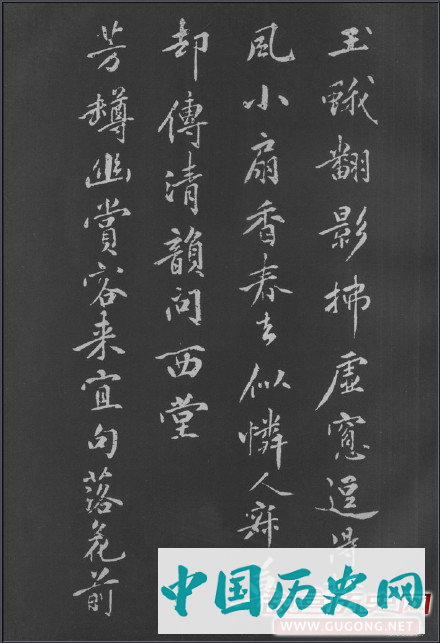 玉蛾翻影拂虛窻逗得
風小扇香春去似憐人寂
却傳清韻问西堂
芳樽幽賞客来宜句落花前
中国历史网
GUGONG.NET